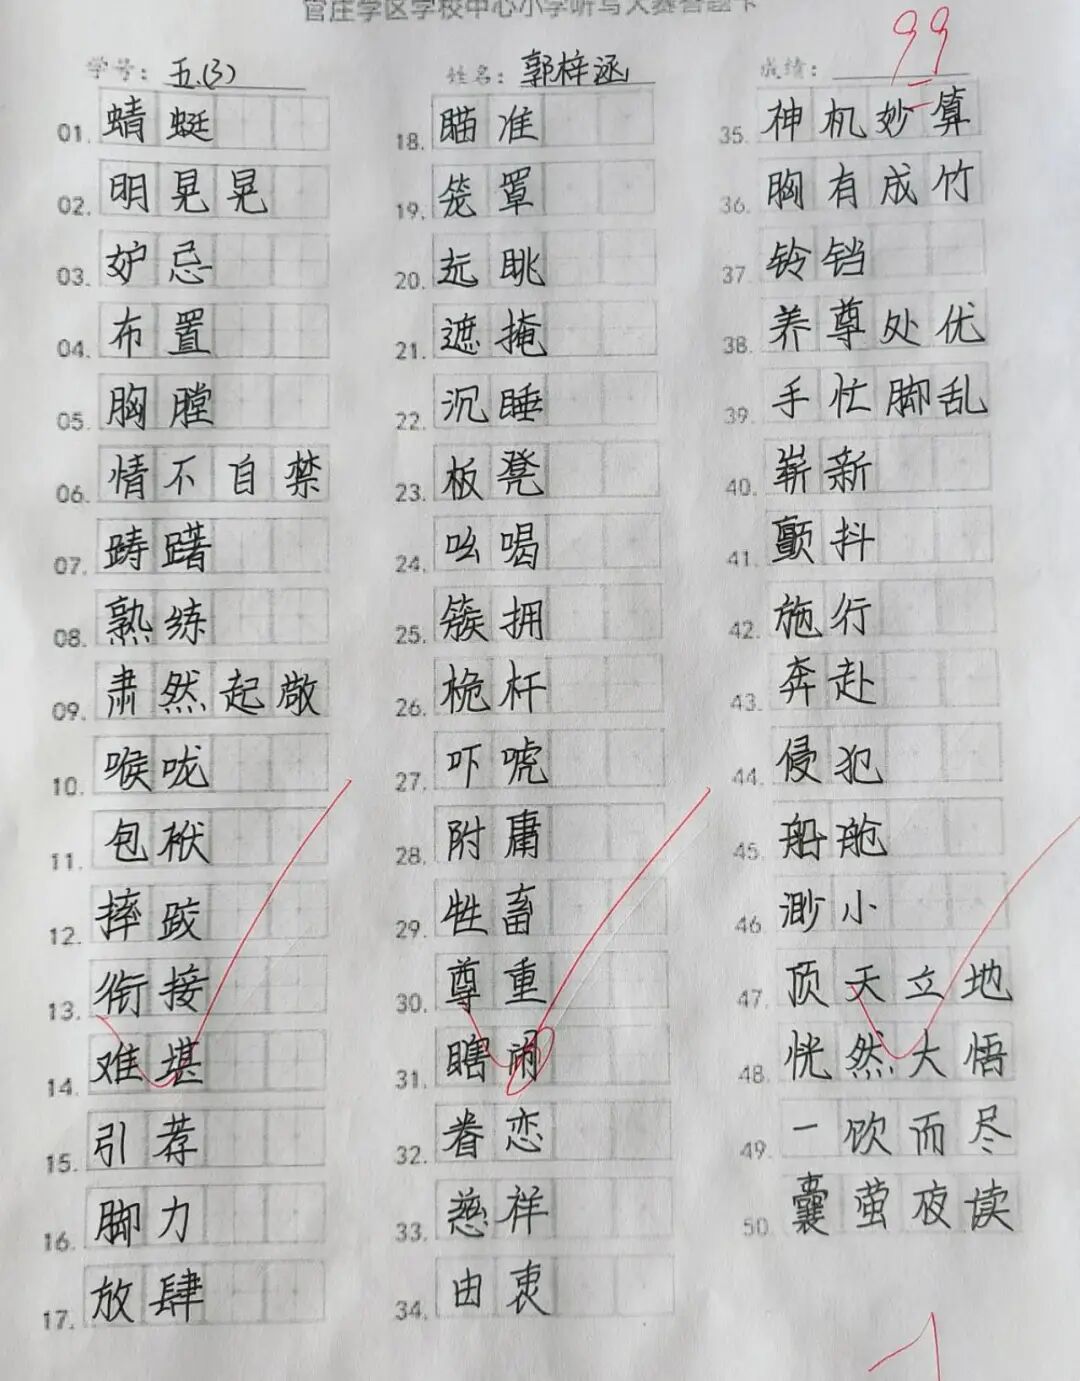 官庄学区学校中心小学听写大赛答题卡
学号：五.(3) 姓名：郭梓涵 成绩：99
01. 蜻蜓
02. 明晃晃
03. 妒忌
04. 布置
05. 胸膛
06. 情不自禁
07. 踌躇
08. 熟练
09. 肃然起敞
10. 喉咙
11. 包袱
12. 摔跤
13. 衔接
14. 难堪
15. 引荐
16. 脚力
17. 放肆
18. 瞄准
19. 笼罩
20. 远眺
21. 遮掩
22. 沉睡
23. 板凳
24. 吆喝
25. 簇拥
26. 桅杆
27. 吓唬
28. 附庸
29. 牲畜
30. 尊重
31. 瞎闹
32. 眷恋
33. 慈祥
34. 由衷
35. 神机妙算
36. 胸有成竹
37. 铃铛
38. 养尊处优
39. 手忙脚乱
40. 崭新
41. 颤抖
42. 施行
43. 奔赴
44. 侵犯
45. 船舱
46. 渺小
47. 顶天立地
48. 恍然大悟
49. 一饮而尽
50. 囊萤夜读